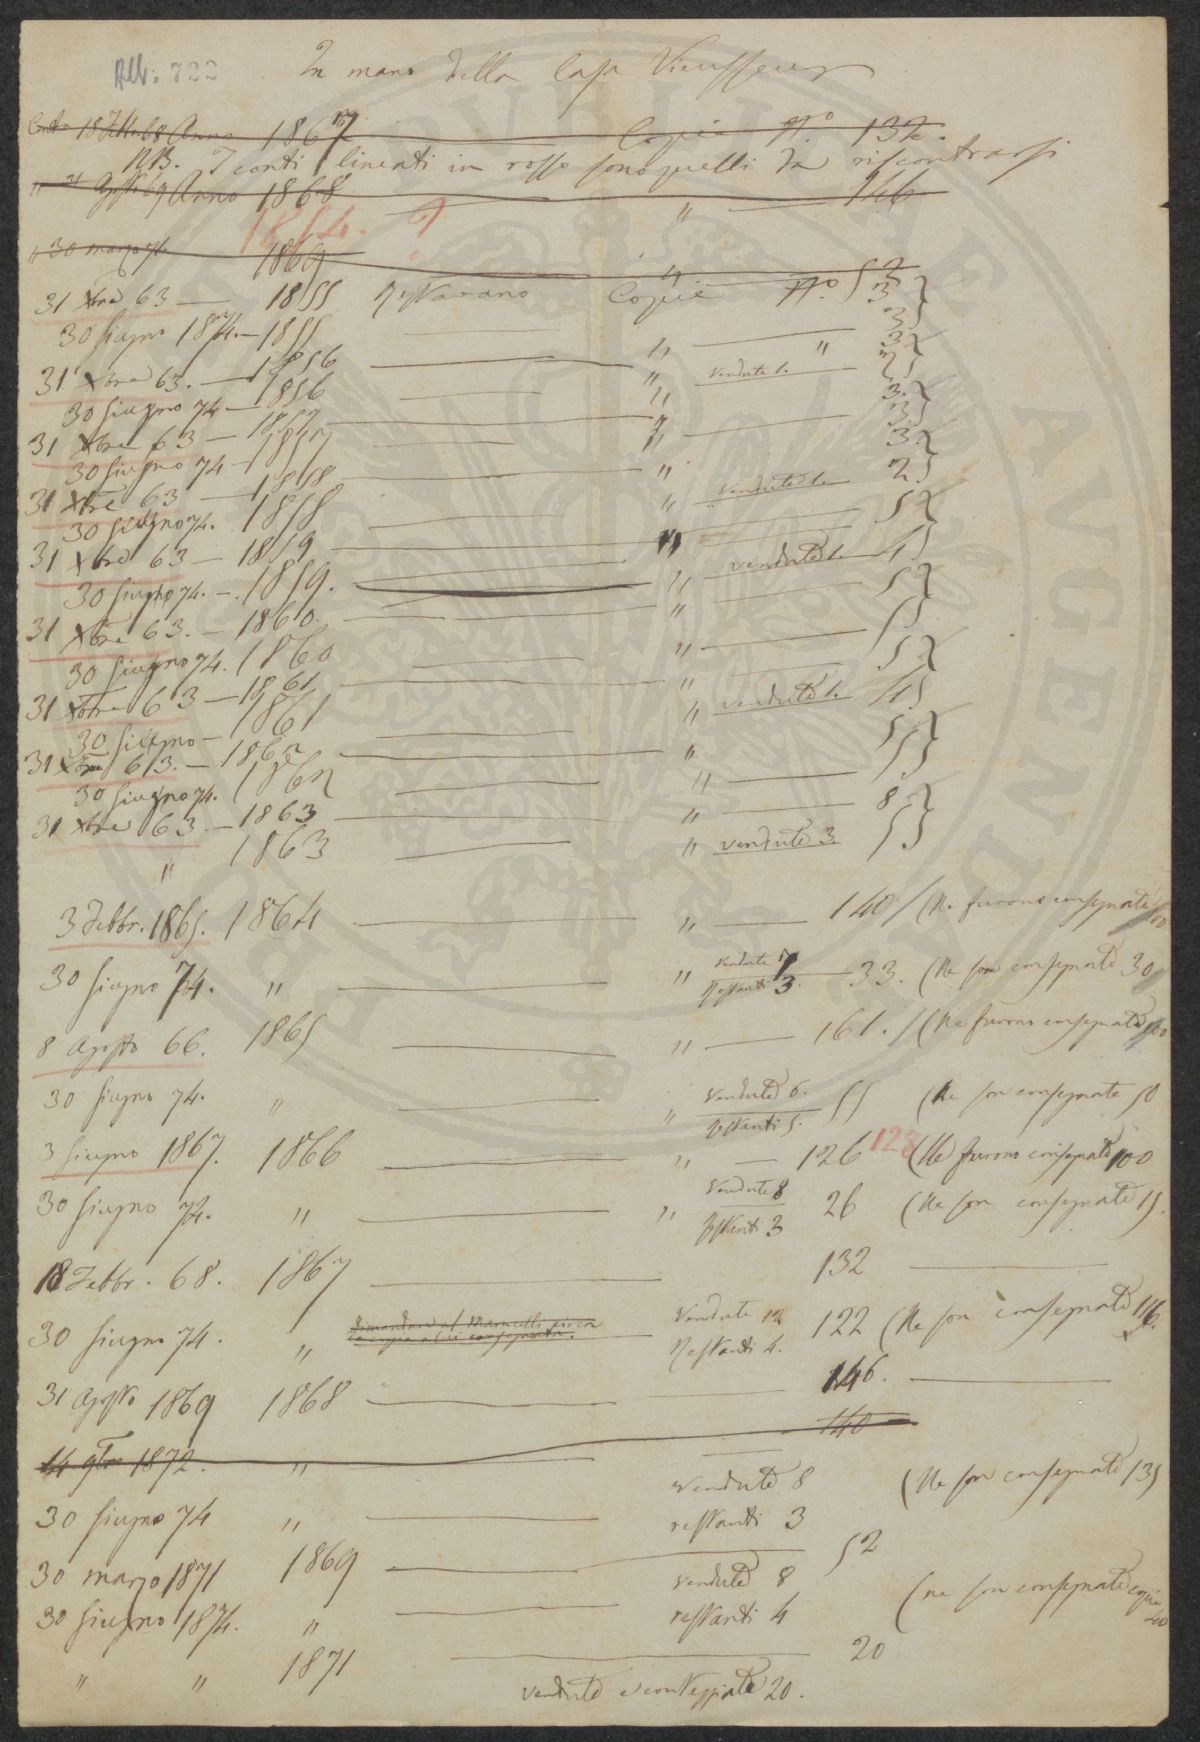 Alb: 722
In mano della Casa Vieusseux
Conto 18 Febb 68 Anno 1867 Copie N.o 132.
NB. I conti lineati in rosso sono quelli da riscontrarsi
" 31 Agosto 69 Anno 1868 " 146
1854. ?
" 30 marzo 71. 1869 " 52
31 Xbre 63 — 1855 Restavano Copie N.o 3
30 Giugno 1874. — 1855 " — " 3
31 Xbre 63. — 1856 " 3
30 Giugno 74 — 1856 " Vendute 1. 2
31 Xbre 63 — 1857 " 3
30 Giugno 74 — 1857 " 3
31 Xbre 63 — 1858 " 3
30 Giugno 74. 1858 " Vendute 1. 2
31 Xbre 63 — 1859 " 5
30 Giugno 74. — 1859. " Vendute 1. 4
31 Xbre 63. — 1860. " 5
30 Giugno 74. 1860 " 5
31 Xbre 63 — 1861 " 5
30 Giugno — 1861 " Vendute 1. 4
31 Xbre 63. — 1862 " 5
30 Giugno 74. 1862 " 5
31 Xbre 63 — 1863 " 8
" 1863 " Vendute 3. 5
3 Febbr. 1865. 1864 " — 140 (Ne furono consegnate 100
30 Giugno 74. " " Vendute 7 33. (Ne son consegnate 30
Restanti 3.
8 Agosto 66. 1865 " — 161. (Ne furono consegnate 100
30 Giugno 74. " " Vendute 6. 55 (Ne son consegnate 50
Restanti 5.
3 Giugno 1867. 1866 " — 126 128 (Ne furono consegnate 100
30 Giugno 74. " " Vendute 8 26 (Ne son consegnate 15.
Restanti 3
18 Febbr. 68. 1867 132
30 Giugno 74. " Vendute 12 122 (Ne son consegnate 116.
Restanti 4.
31 Agosto 1869 1868 146.
14 9bre 1872. " 140
30 Giugno 74 " Vendute 8 (Ne son consegnate 135
restanti 3
30 marzo 1871 1869 52
30 Giugno 1874. " Vendute 8 (ne son consegnate copie 40
restanti 4
" " 1871 20
Vendute e conteggiate 20.